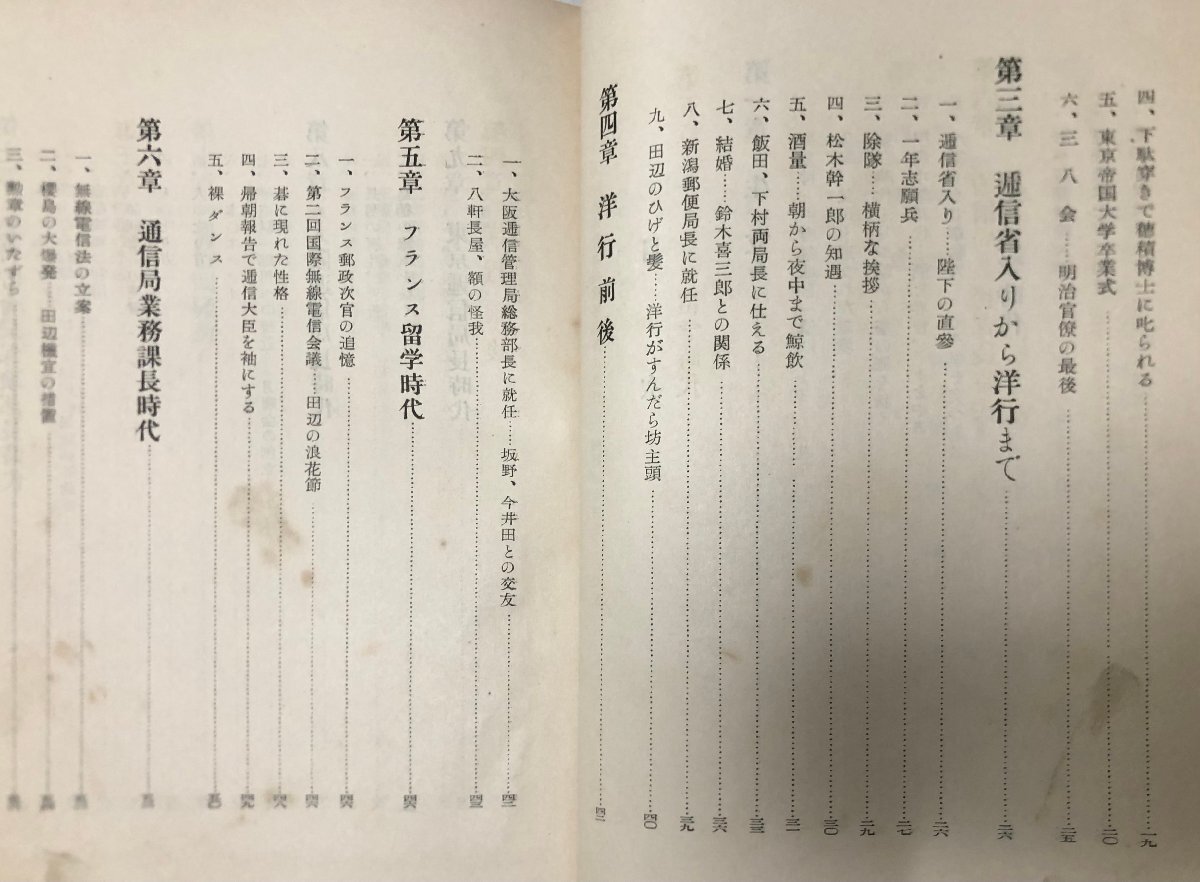 四、下駄穿きで穂積博士に叱られる……一九
五、東京帝国大学卒業式……二〇
六、三八会……明治官僚の最後……二五
第三章 逓信省入りから洋行まで……二六
一、逓信省入り……陛下の直参……二六
二、一年志願兵……二七
三、除隊……横柄な挨拶……二九
四、松木幹一郎の知遇……三〇
五、酒量……朝から夜中まで鯨飲……三一
六、飯田、下村両局長に仕える……三三
七、結婚……鈴木喜三郎との関係……三六
八、新潟郵便局長に就任……三九
九、田辺のひげと髪……洋行がすんだら坊主頭……四〇
第四章 洋行前後……四二
一、大阪逓信管理局総務部長に就任……坂野、今井田との交友……四二
二、八軒長屋、額の怪我……四三
第五章 フランス留学時代……四六
一、フランス郵政次官の追憶……四六
二、第二回国際無線電信会議……田辺の浪花節……四六
三、碁に現れた性格……四八
四、帰朝報告で逓信大臣を袖にする……四九
五、裸ダンス……五〇
第六章 通信局業務課長時代
一、無線電信法の立案
二、櫻島の大爆発……田辺機宜の措置
三、勲章のいたずら